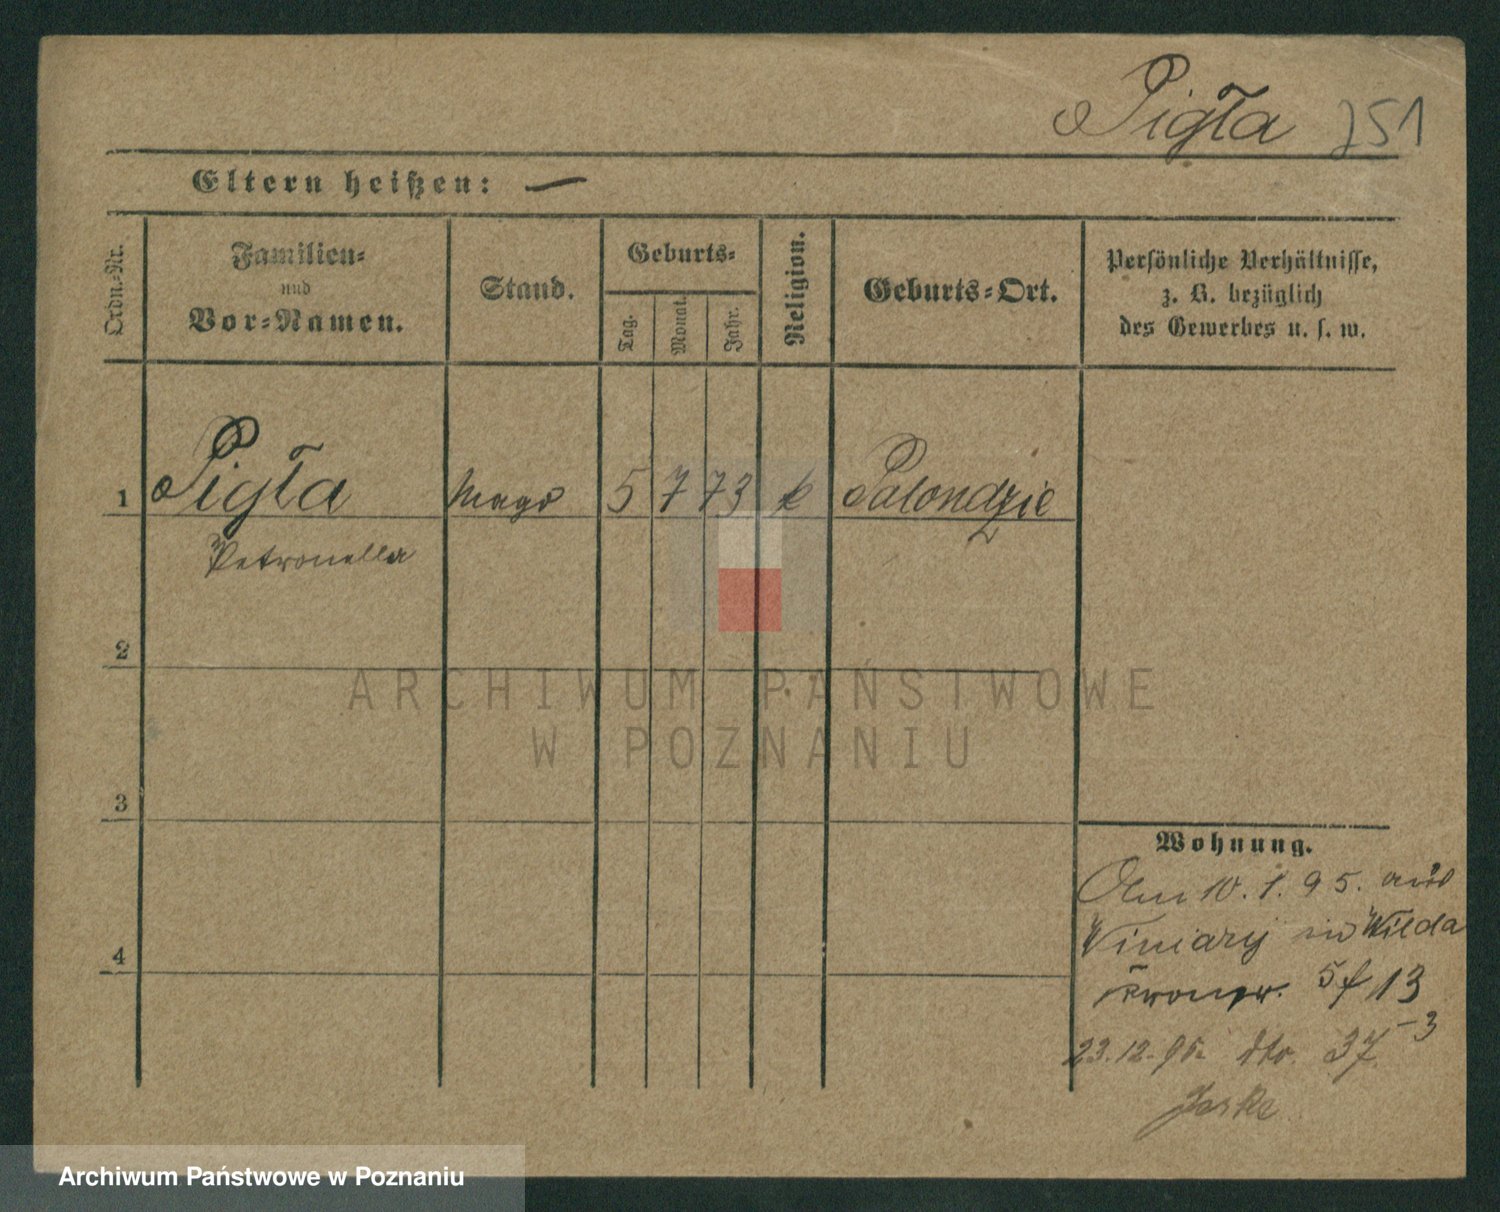 Pigła 751
Eltern heißen: —
Ordn.-Nr.
Familien-
und
Vor-Namen.
Stand.
Geburts-
Tag.
Monat.
Jahr.
Religion.
Geburts-Ort.
Persönliche Verhältnisse,
z. B. bezüglich
des Gewerbes u. s. w.
1 Pigła Magd 5 7 73 k Palendzie
Petronella
2
3
4
Wohnung.
Am 10. 1. 95. aus
Winiary in Wilda
Kronpr. 5 f 13
23.12.95. dto. 37 -3
ARCHIWUM PAŃSTWOWE
W POZNANIU
Archiwum Państwowe w Poznaniu